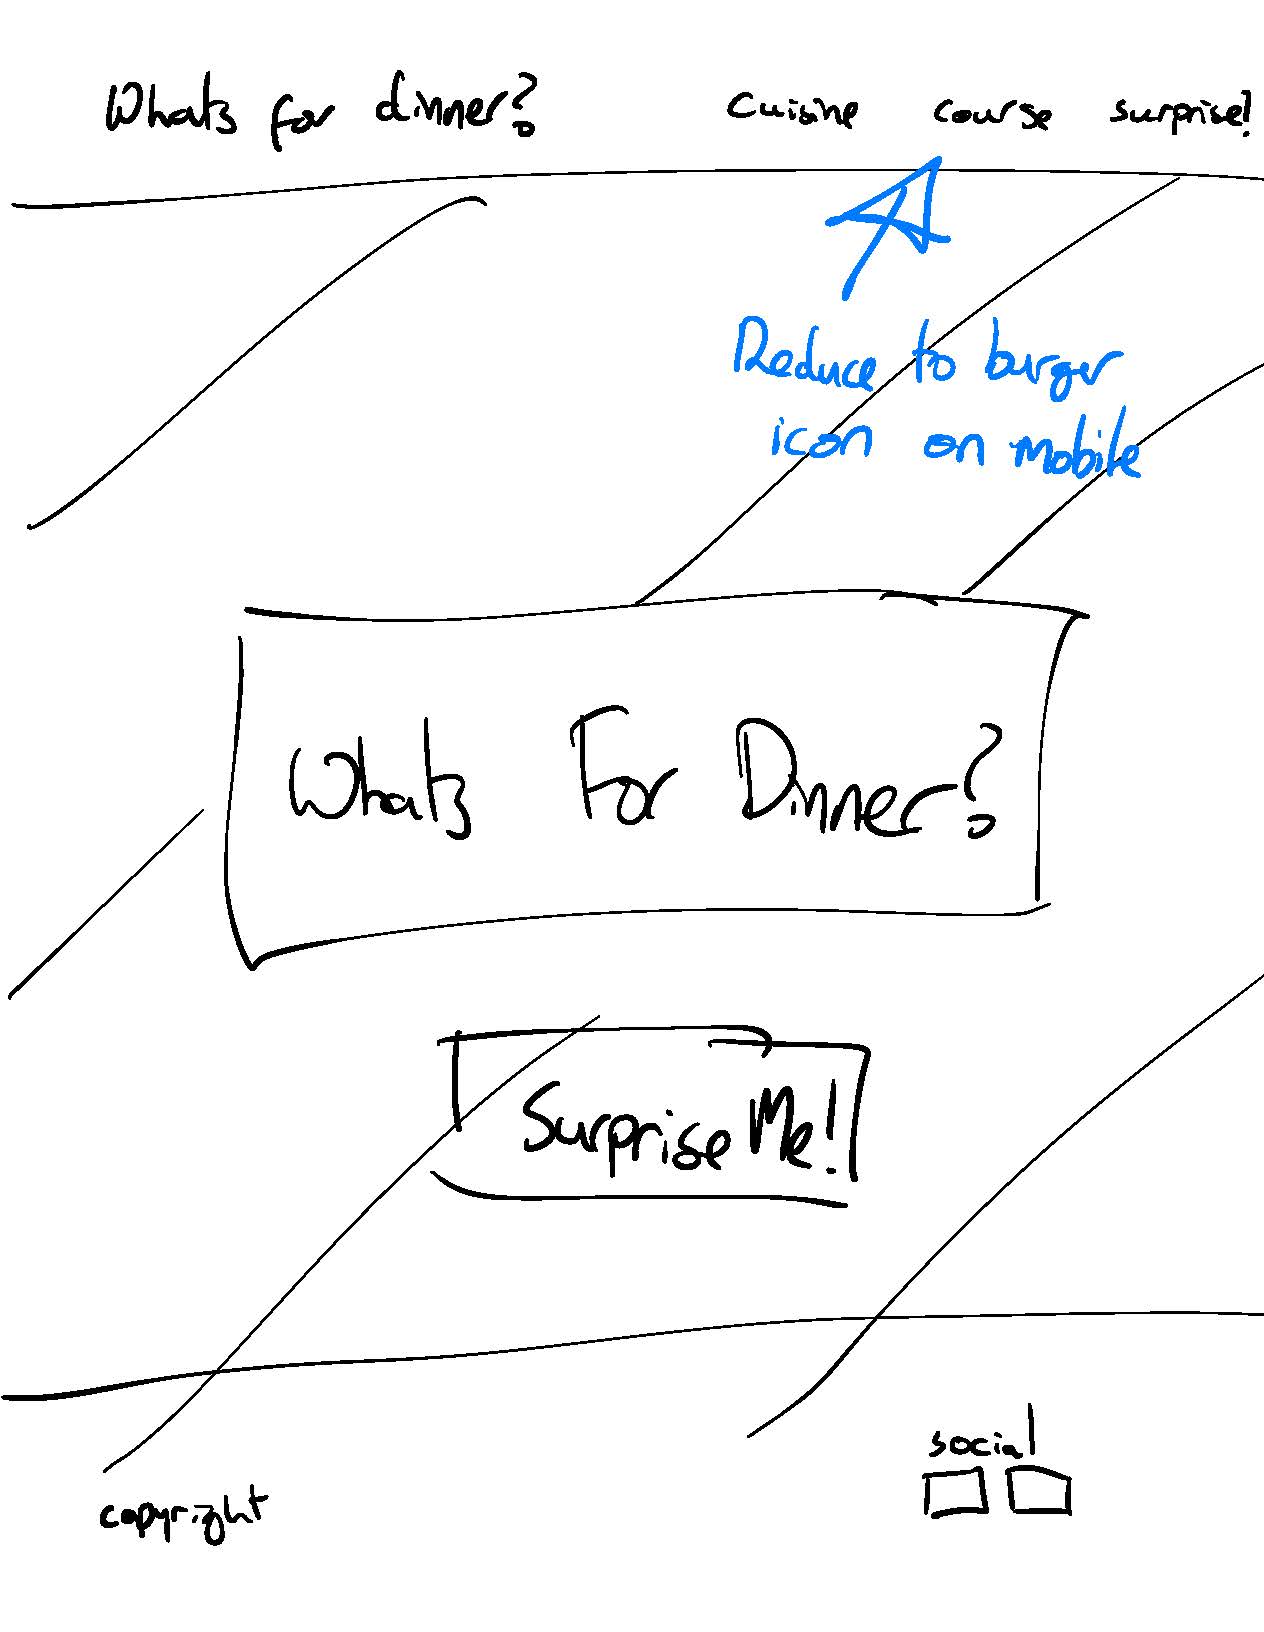 Whats for dinner? Cuisine course surprise!
Reduce to burger
icon on mobile
Whats For Dinner?
Surprise Me!
social
copyright